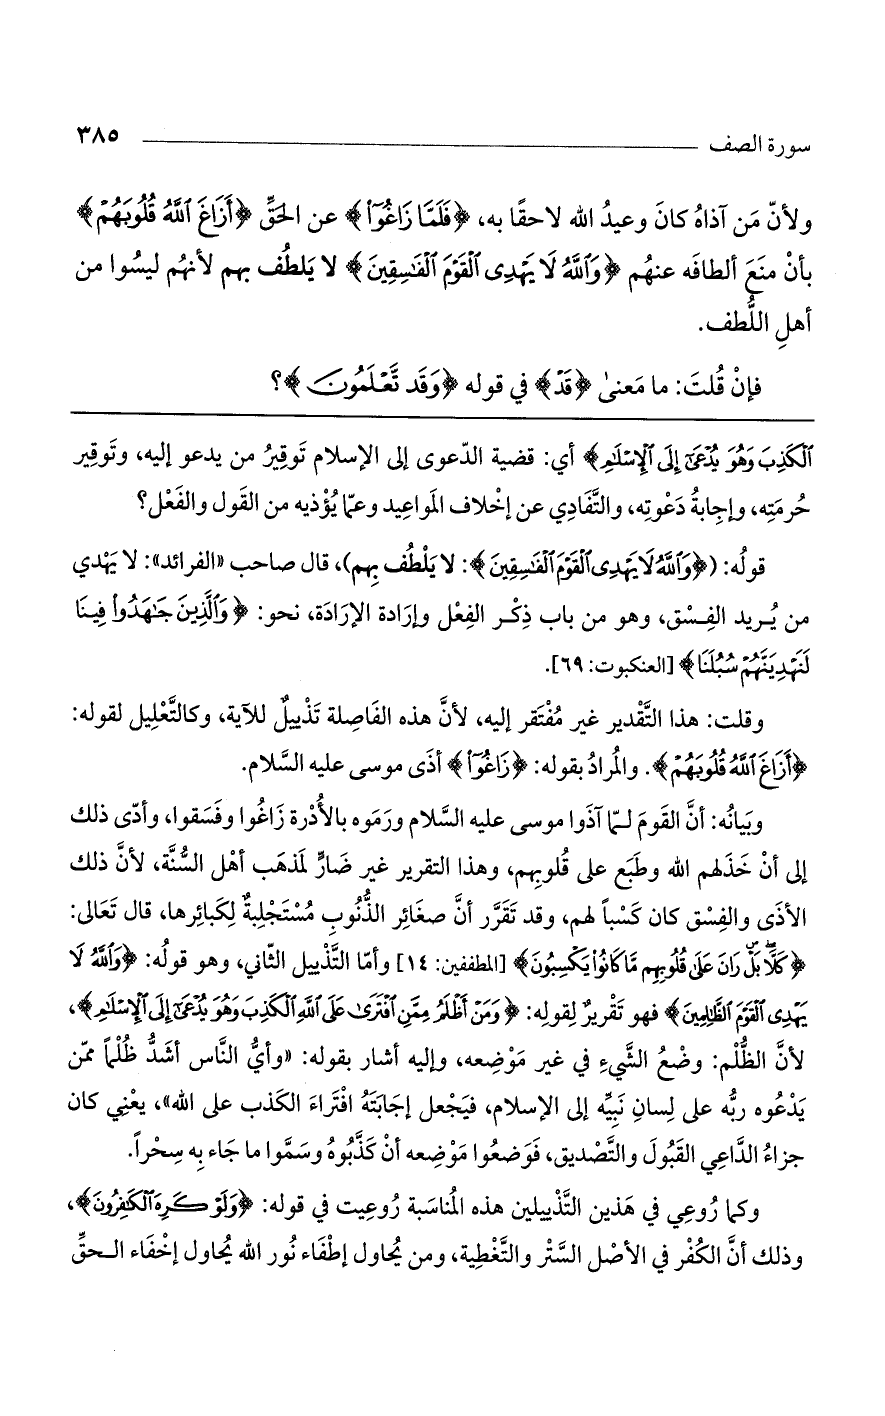 سورة الصف ٣٨٥
ولأنّ مَن آذاهُ كانَ وعيدُ الله لاحقًا به، ﴿فَلَمَّا زَاغُوٓاْ﴾ عن الحَقِّ ﴿أَزَاغَ ٱللَّهُ قُلُوبَهُمْ﴾
بأنْ منَعَ ألطافَه عنهُم ﴿وَٱللَّهُ لَا يَهْدِى ٱلْقَوْمَ ٱلْفَٰسِقِينَ﴾ لا يَلطُف بهم لأنهُم ليسُوا من
أهلِ اللُّطف.
فإنْ قُلتَ: ما مَعنىٰ ﴿قَدْ﴾ في قوله ﴿وَقَد تَّعْلَمُونَ﴾؟
ٱلْكَذِبَ وَهُوَ يُدْعَىٰٓ إِلَى ٱلْإِسْلَٰمِ﴾ أي: قضية الدّعوى إلى الإسلام تَوقِيرُ من يدعو إليه، وتَوقِير
حُرمَتِه، وإجابةُ دَعْوتِه، والتَّفَادِي عن إخْلاف المَواعِيد وعمّا يُؤْذيه من القَول والفَعْل؟
قولُه: (﴿وَٱللَّهُ لَا يَهْدِى ٱلْقَوْمَ ٱلْفَٰسِقِينَ﴾: لا يَلْطُف بِهم)، قال صاحب «الفرائد»: لا يَهْدي
من يُريد الفِسْق، وهو من باب ذِكْر الفِعْل وإرَادة الإرَادَة، نحو: ﴿وَٱلَّذِينَ جَٰهَدُواْ فِينَا
لَنَهْدِيَنَّهُمْ سُبُلَنَا﴾ [العنكبوت: ٦٩].
وقلت: هذا التَّقْدير غير مُفْتَقر إليه، لأنَّ هذه الفَاصِلة تَذْييلٌ للآية، وكالتَّعْلِيل لقوله:
﴿أَزَاغَ ٱللَّهُ قُلُوبَهُمْ﴾. والمُرادُ بقوله: ﴿زَاغُوٓاْ﴾ أذَى موسى عليه السَّلام.
وبيَانُه: أنَّ القَومَ لـمّا آذَوا موسى عليه السَّلام ورَمَوه بالأُدْرة زَاغُوا وفَسَقوا، وأدّى ذلك
إلى أنْ خَذَلهم الله وطَبَع على قُلوبِهم، وهذا التقرير غير ضَارٍّ لمَذهَب أهْل السُّنَّة، لأنَّ ذلك
الأذَى والفِسْق كان كَسْباً لهم، وقد تَقَرَّر أنَّ صغَائِر الذُّنُوبِ مُسْتَجْلِبةٌ لِكَبائِرها، قال تَعَالى:
﴿كَلَّا بَلْ رَانَ عَلَىٰ قُلُوبِهِم مَّا كَانُواْ يَكْسِبُونَ﴾ [المطففين: ١٤] وأمّا التَّذْييل الثّاني، وهو قولُه: ﴿وَٱللَّهُ لَا
يَهْدِى ٱلْقَوْمَ ٱلظَّٰلِمِينَ﴾ فهو تَقْريرٌ لِقولِه: ﴿وَمَنْ أَظْلَمُ مِمَّنِ ٱفْتَرَىٰ عَلَى ٱللَّهِ ٱلْكَذِبَ وَهُوَ يُدْعَىٰٓ إِلَى ٱلْإِسْلَٰمِ﴾،
لأنَّ الظُّلْم: وضْعُ الشَّيءِ في غير مَوْضِعه، وإليه أشار بقوله: «وأيُّ النَّاس أشَدُّ ظُلْماً ممّن
يَدْعُوه ربُّه على لِسانِ نَبِيِّه إلى الإسلام، فيَجْعل إجَابَتَهُ افْتِرَاءَ الكَذب على الله»، يعْنِي كان
جزاءُ الدَّاعِي القَبُولَ والتَّصْديق، فَوَضعُوا مَوْضِعه أنْ كَذَّبُوهُ وسَمَّوا ما جَاء بِه سِحْراً.
وكما رُوعِي في هَذين التَّذْييلين هذه المُناسَبة رُوعِيت في قوله: ﴿وَلَوْ كَرِهَ ٱلْكَٰفِرُونَ﴾،
وذلك أنَّ الكُفْر في الأصْل السَّتْر والتَّغْطِية، ومن يُحاول إطْفَاء نُور الله يُحاول إخْفَاء الـحقِّ